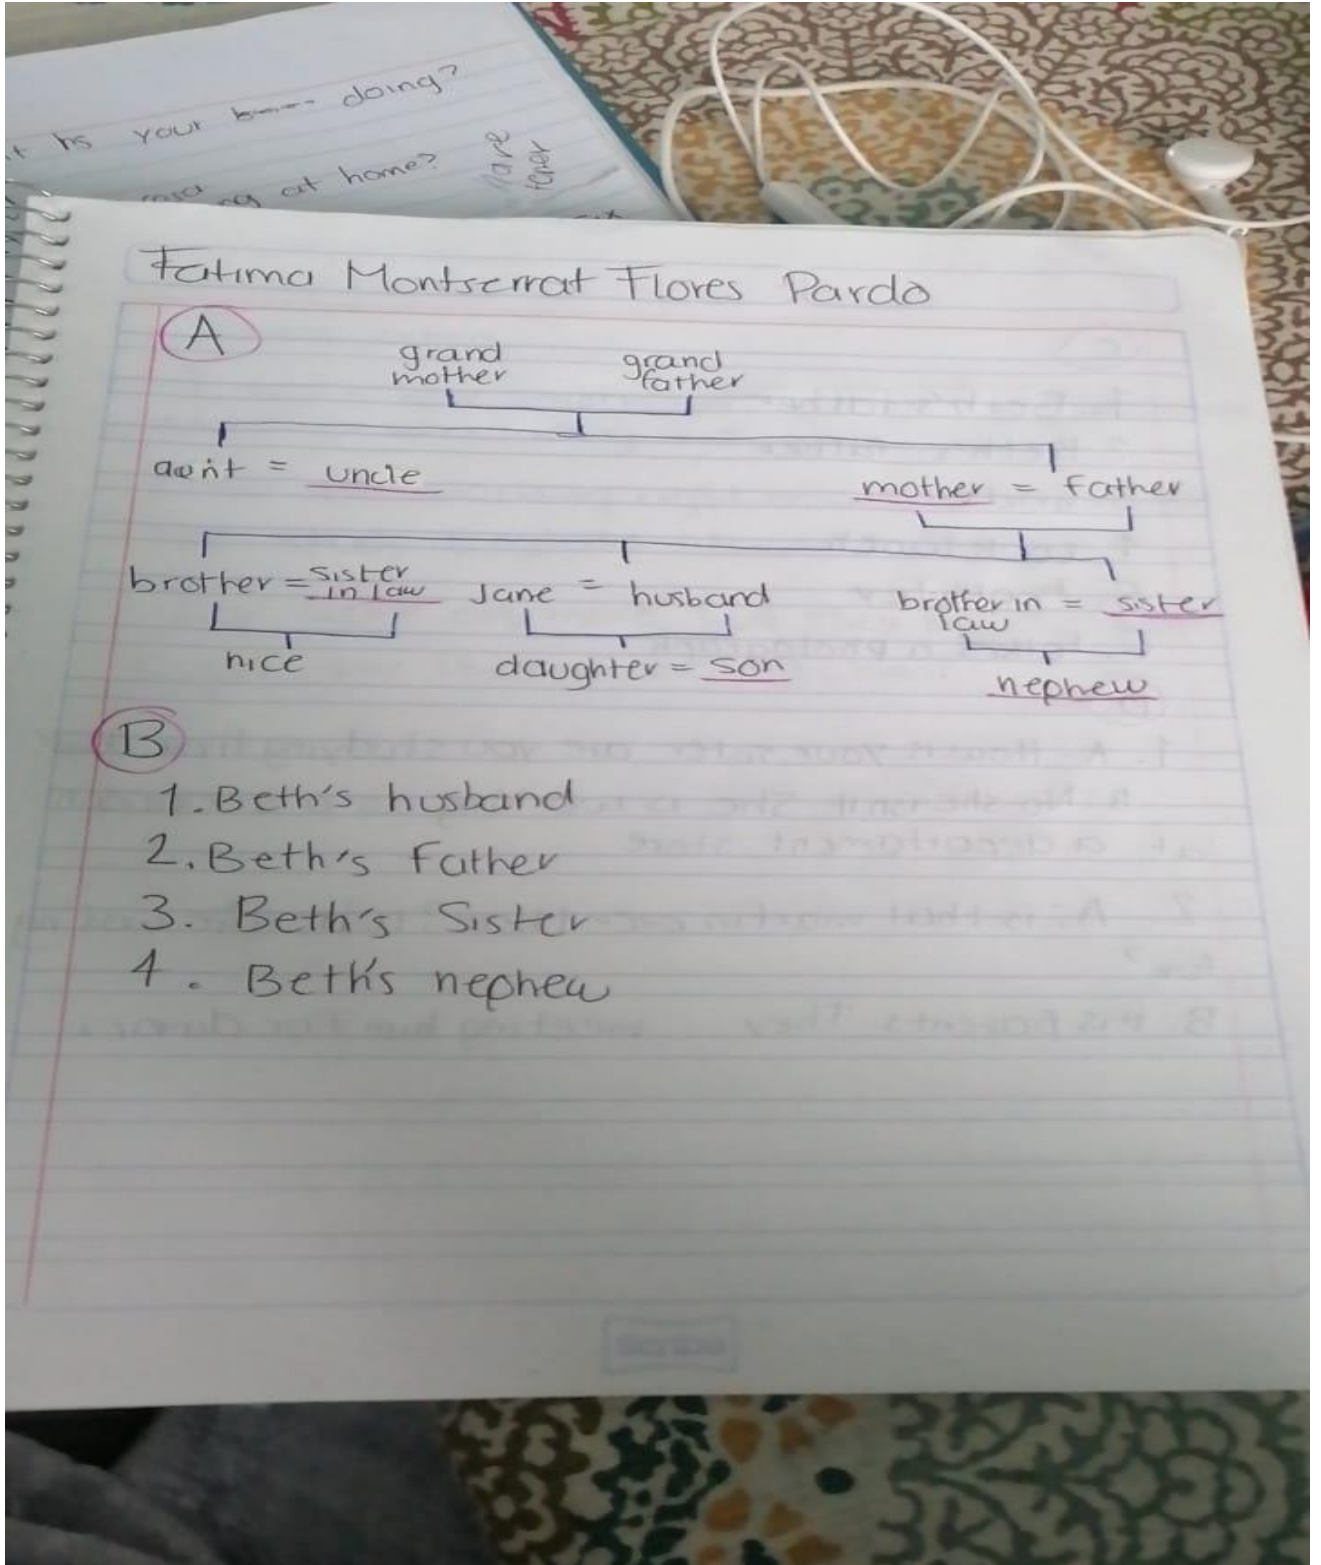 your doing?
at home?
Fatima Montserrat Flores Pardo
A
grand mother grand father
aunt = uncle mother = father
brother = sister in law Jane = husband brother in law = sister
nice daughter = son nephew
B
1. Beth's husband
2. Beth's Father
3. Beth's Sister
4. Beth's nephew